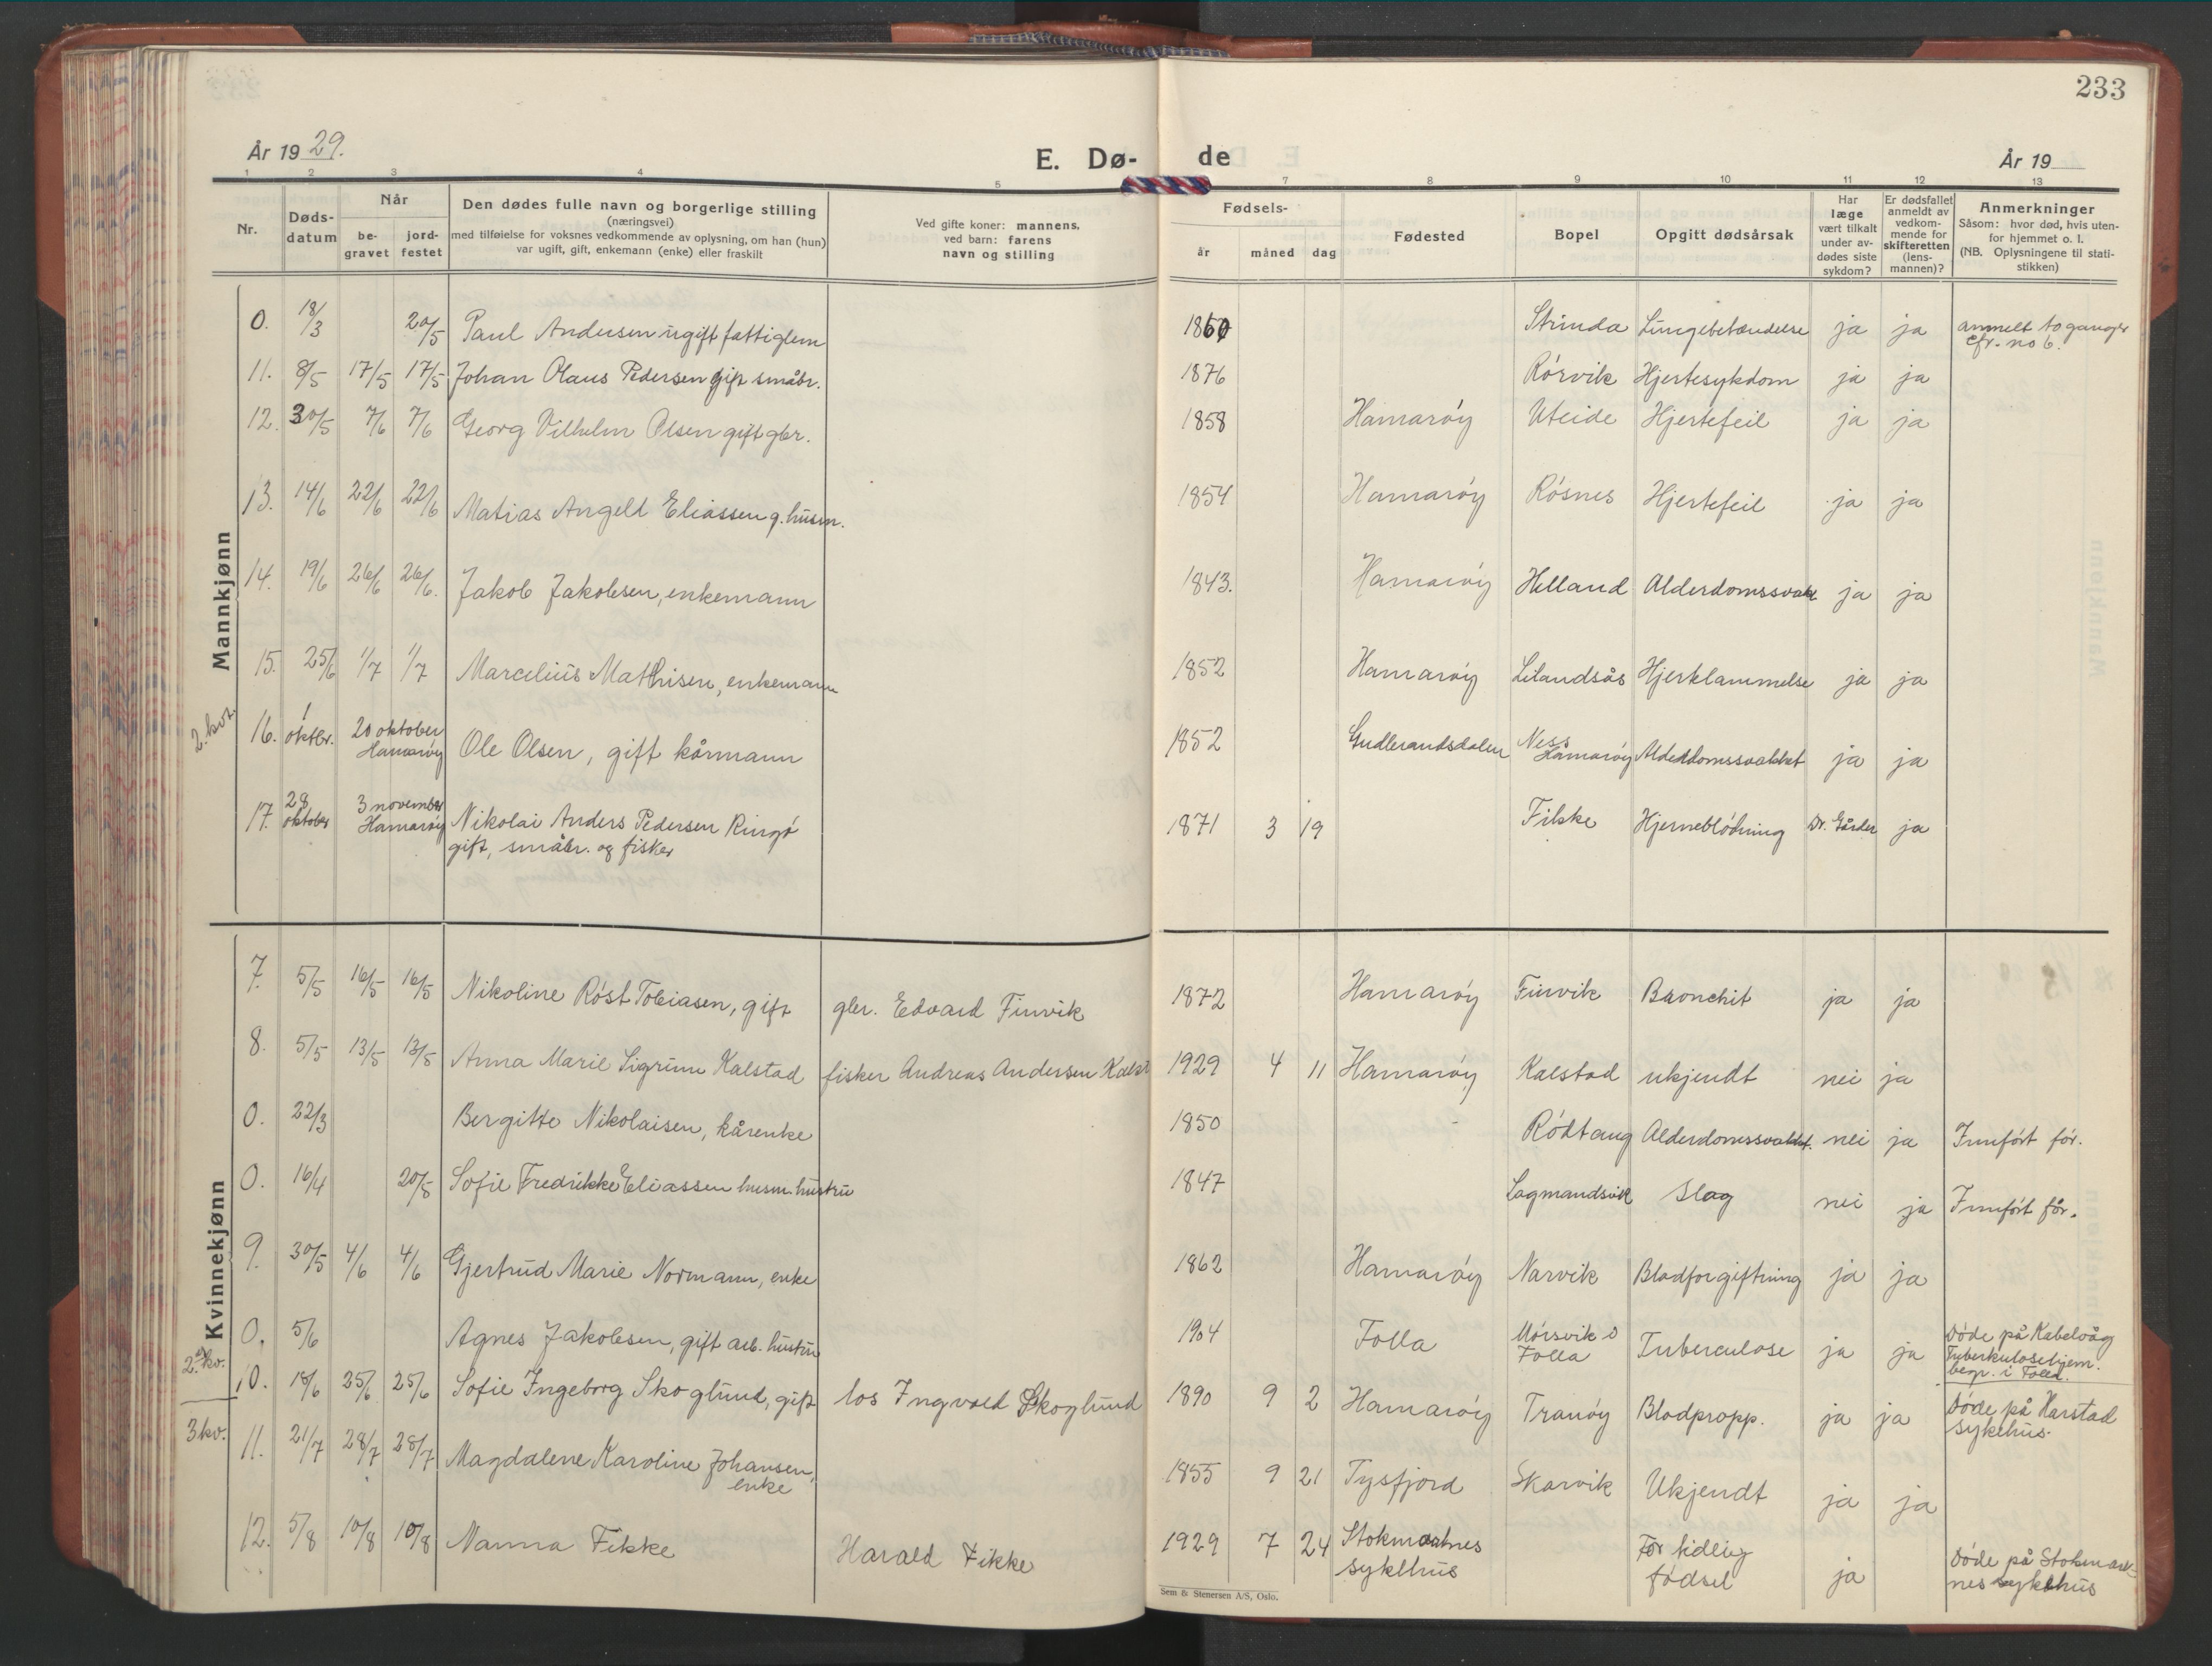 233
År 1929.
E. Dø-de
År 19
1 2 3 4 5 7 8 9 10 11 12 13
Nr.
Døds-datum
Når
be-gravet
jord-festet
Den dødes fulle navn og borgerlige stilling
(næringsvei)
med tilføielse for voksnes vedkommende av oplysning, om han (hun)
var ugift, gift, enkemann (enke) eller fraskilt
Ved gifte koner: mannens,
ved barn: farens
navn og stilling
Fødsels-
år måned dag
Fødested
Bopel
Opgitt dødsårsak
Har
læge
vært tilkalt
under av-
dødes siste
sykdom?
Er dødsfallet
anmeldt av
vedkom-
mende for
skifteretten
(lens-
mannen)?
Anmerkninger
Såsom: hvor død, hvis uten-
for hjemmet o. l.
(NB. Oplysningene til stati-
stikken)
Mannkjønn
0. 18/3 20/5 Paul Andersen ugift fattiglem 1860 Strinda Lungebetændelse ja ja anmelt to ganger
cfr. no 6.
11. 8/5 17/5 17/5 Johan Olaus Pedersen gift småbr. 1876 Rørvik Hjertesykdom ja ja
12. 30/5 7/6 7/6 Georg Vilhelm Olsen gift gbr. 1858 Hamarøy Uteide Hjertefeil ja ja
13. 14/6 22/6 22/6 Matias Angell Eliassen g. husm. 1854 Hamarøy Røsnes Hjertefeil ja ja
14. 19/6 26/6 26/6. Jakob Jakobsen, enkemann 1843. Hamarøy Helland Alderdomssvakh ja ja
15. 25/6 1/7 1/7 Marcelius Mathisen, enkemann 1852 Hamarøy Lilandsås Hjerklammelse ja ja
2. kv.
16. 1 oktbr. 20 oktober
Hamarøy Ole Olsen, gift kårmann 1852 Gudbrandsdalen Ness
Hamarøy Alderdomssvakhet ja ja
17. 28 oktober 3 november
Hamarøy Nikolai Anders Pedersen Ringø 1871 3 19 Fikke Hjerneblødning Dr. ja
gift, småbr. og fisker
Kvinnekjønn
7. 5/5 16/5 16/5 Nikoline Røst Tobiasen, gift gbr. Edvard Finvik 1872 Hamarøy Finvik Bronchit ja ja
8. 5/5 13/5 13/5 Anna Marie Sigrunn Kalstad fisker Andreas Andersen Kalst 1929 4 11 Hamarøy Kalstad ukjendt nei ja
0. 22/3 Bergitte Nikolaisen, kårenke 1850 Rødtang Alderdomssvakhet. nei ja Innført før.
0. 16/4 20/5 Sofie Fredrikke Eliassen husm. hustru 1847 Lagmandsvik Slag nei ja Innført før.
9. 30/5 4/6 4/6 Gjertrud Marie Normann, enke 1862 Hamarøy Narvik Blodforgiftning ja ja
0. 5/6 Agnes Jakobsen, gift arb. hustru 1904 Folla Mørsvik i
Folla Tuberculose ja ja Døde på Kabelvåg
Tuberkulosehjem.
begr. i Folla.
2. kv.
10. 18/6 25/6 25/6 Sofie Ingeborg Skoglund, gift los Ingvald Skoglund 1890 9 2 Hamarøy Tranøy Blodpropp. ja ja Døde på Harstad
sykehus.
3 kv.
11. 21/7 28/7 28/7 Magdalene Karoline Johansen,
enke 1855 9 21 Tysfjord Skarvik Ukjendt ja ja
12. 5/8 10/8 10/8 Nanna Fikke Harald Fikke 1929 7 24 Stokmarknes
sykehus For tidlig
fødsel ja Døde på Stokmark-
nes sykehus
Sem & Stenersen A/S, Oslo.